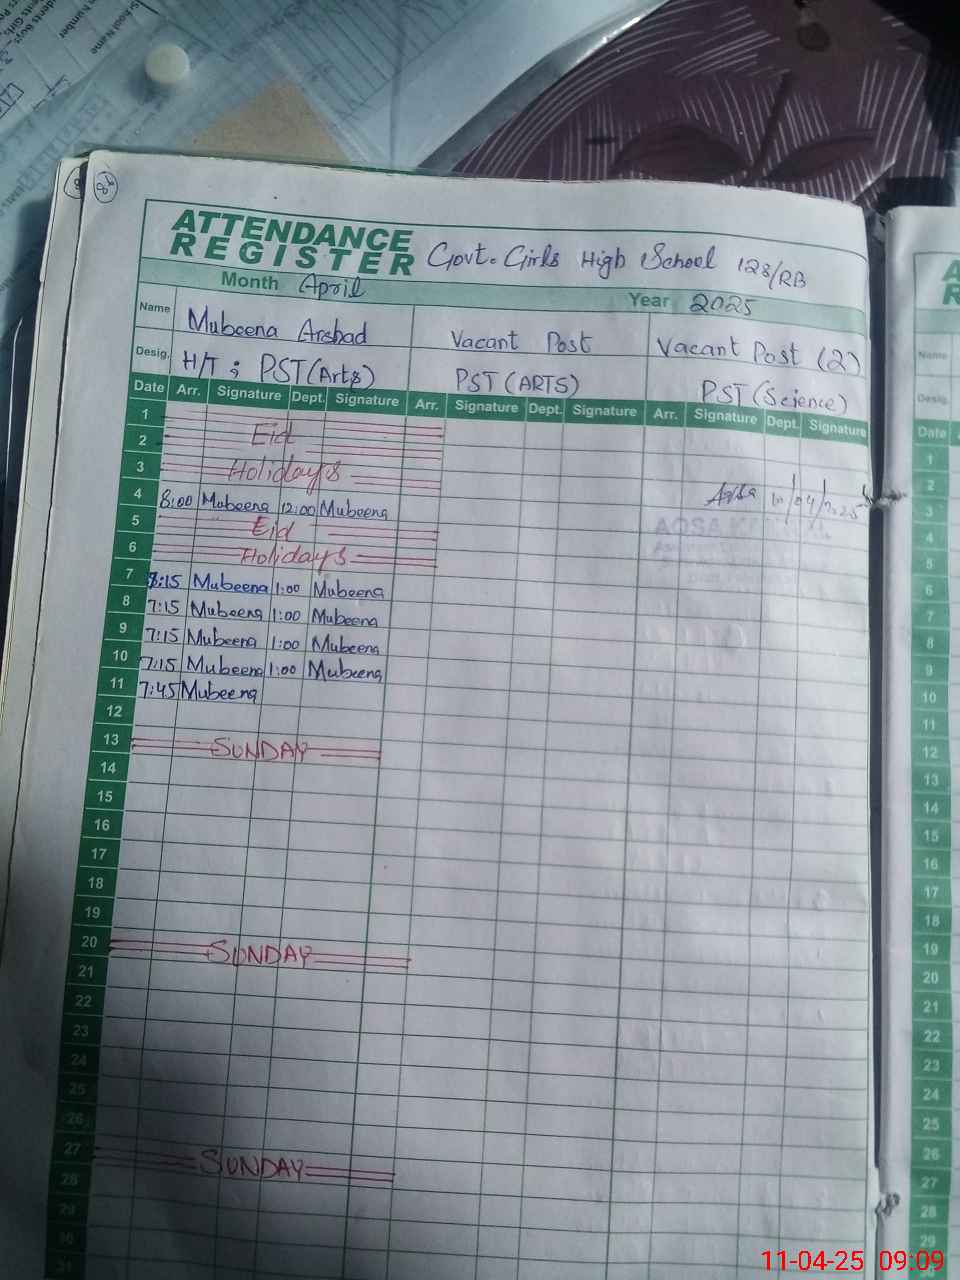 ATTENDANCE REGISTER Govt. Girls High School 128/RB
Month April Year 2025
Name Mubeena Arshad Vacant Post Vacant Post (2)
Desig. H/T ; PST(Arts) PST (ARTS) PST (Science)
Date Arr. Signature Dept. Signature Arr. Signature Dept. Signature Arr. Signature Dept. Signature
1
2 Eid
3 Holidays
4 8:00 Mubeena 12:00 Mubeena
5 Eid
6 Holidays
7 8:15 Mubeena 1:00 Mubeena
8 7:15 Mubeena 1:00 Mubeena
9 7:15 Mubeena 1:00 Mubeena
10 7:15 Mubeena 1:00 Mubeena
11 7:45 Mubeena
12
13 SUNDAY
14
15
16
17
18
19
20 SUNDAY
21
22
23
24
25
26
27 SUNDAY
28
29
30
31
Name
Desig.
Date
1
2
3
4
5
6
7
8
9
10
11
12
13
14
15
16
17
18
19
20
21
22
23
24
25
26
27
28
29
11-04-25 09:09